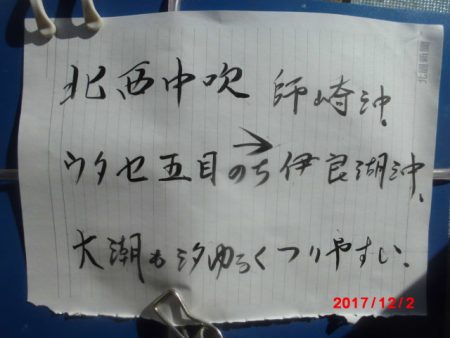 北西中吹 師崎沖、
ウタセ五目のち→伊良湖沖、
大潮も汐ゆるくつりやすい、
2017/12/2